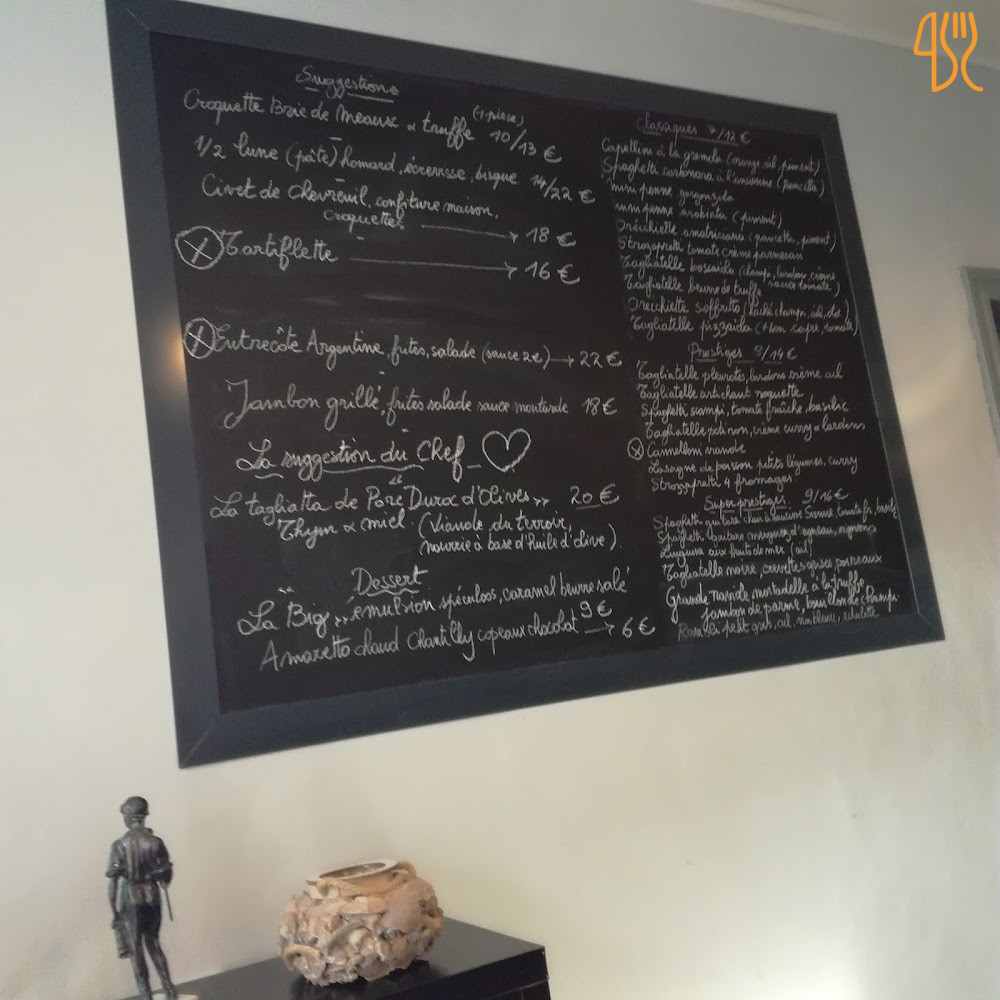 Suggestions
Croquette Brie de Meaux & truffe (1 pièce) 10/13 €
1/2 lune (pâte) homard, écrevisse, bisque 14/22 €
Civet de chevreuil, confiture maison,
croquettes 18 €
X Tartiflette 16 €
X Entrecôte Argentine, frites, salade (sauce 2€) 22 €
Jambon grillé, frites salade sauce moutarde 18€
La suggestion du Chef
La tagliatta de Porc "Duroc d'Olives" 20 €
Thym & miel (Viande du terroir,
nourrie à base d'huile d'olive)
Dessert
La "Big", émulsion spéculoos, caramel beurre salé
9 €
Amaretto chaud chantilly copeaux chocolat 6 €
Classiques 7/12 €
Capellini à la (ail, piment)
Spaghetti carbonara à l'ancienne (pancetta)
mini penne gorgonzola
mini penne arabiata (piment)
Orecchiette amatriciana (pancetta, piment)
Strozzapretti tomate crème parmesan
Tagliatelle boscaiola (champi, lardons, crème
sauce tomate)
Tagliatelle beurre de truffe
Orecchiette soffritto (haché champi, ail,)
Tagliatelle pizzaiola (thon capre, tomate)
Prestiges 8/14 €
Tagliatelle pleurotes, lardons crème ail
Tagliatelle artichaut roquette
Spaghetti scampi, tomate fraîche, basilic
Tagliatelle potiron, crème curry & lardons
X Cannelloni viande
Lasagne de poisson petits légumes, curry
Strozzapretti 4 fromages
Superprestiges 9/16 €
Spaghetti
Spaghetti merguez d'agneau,
Linguine aux fruits de mer (ail)
Tagliatelle noire, crevettes grises, poireaux
Grande raviole mortadelle à la truffe,
jambon de parme, champi
petit gris, ail, vin blanc, échalote